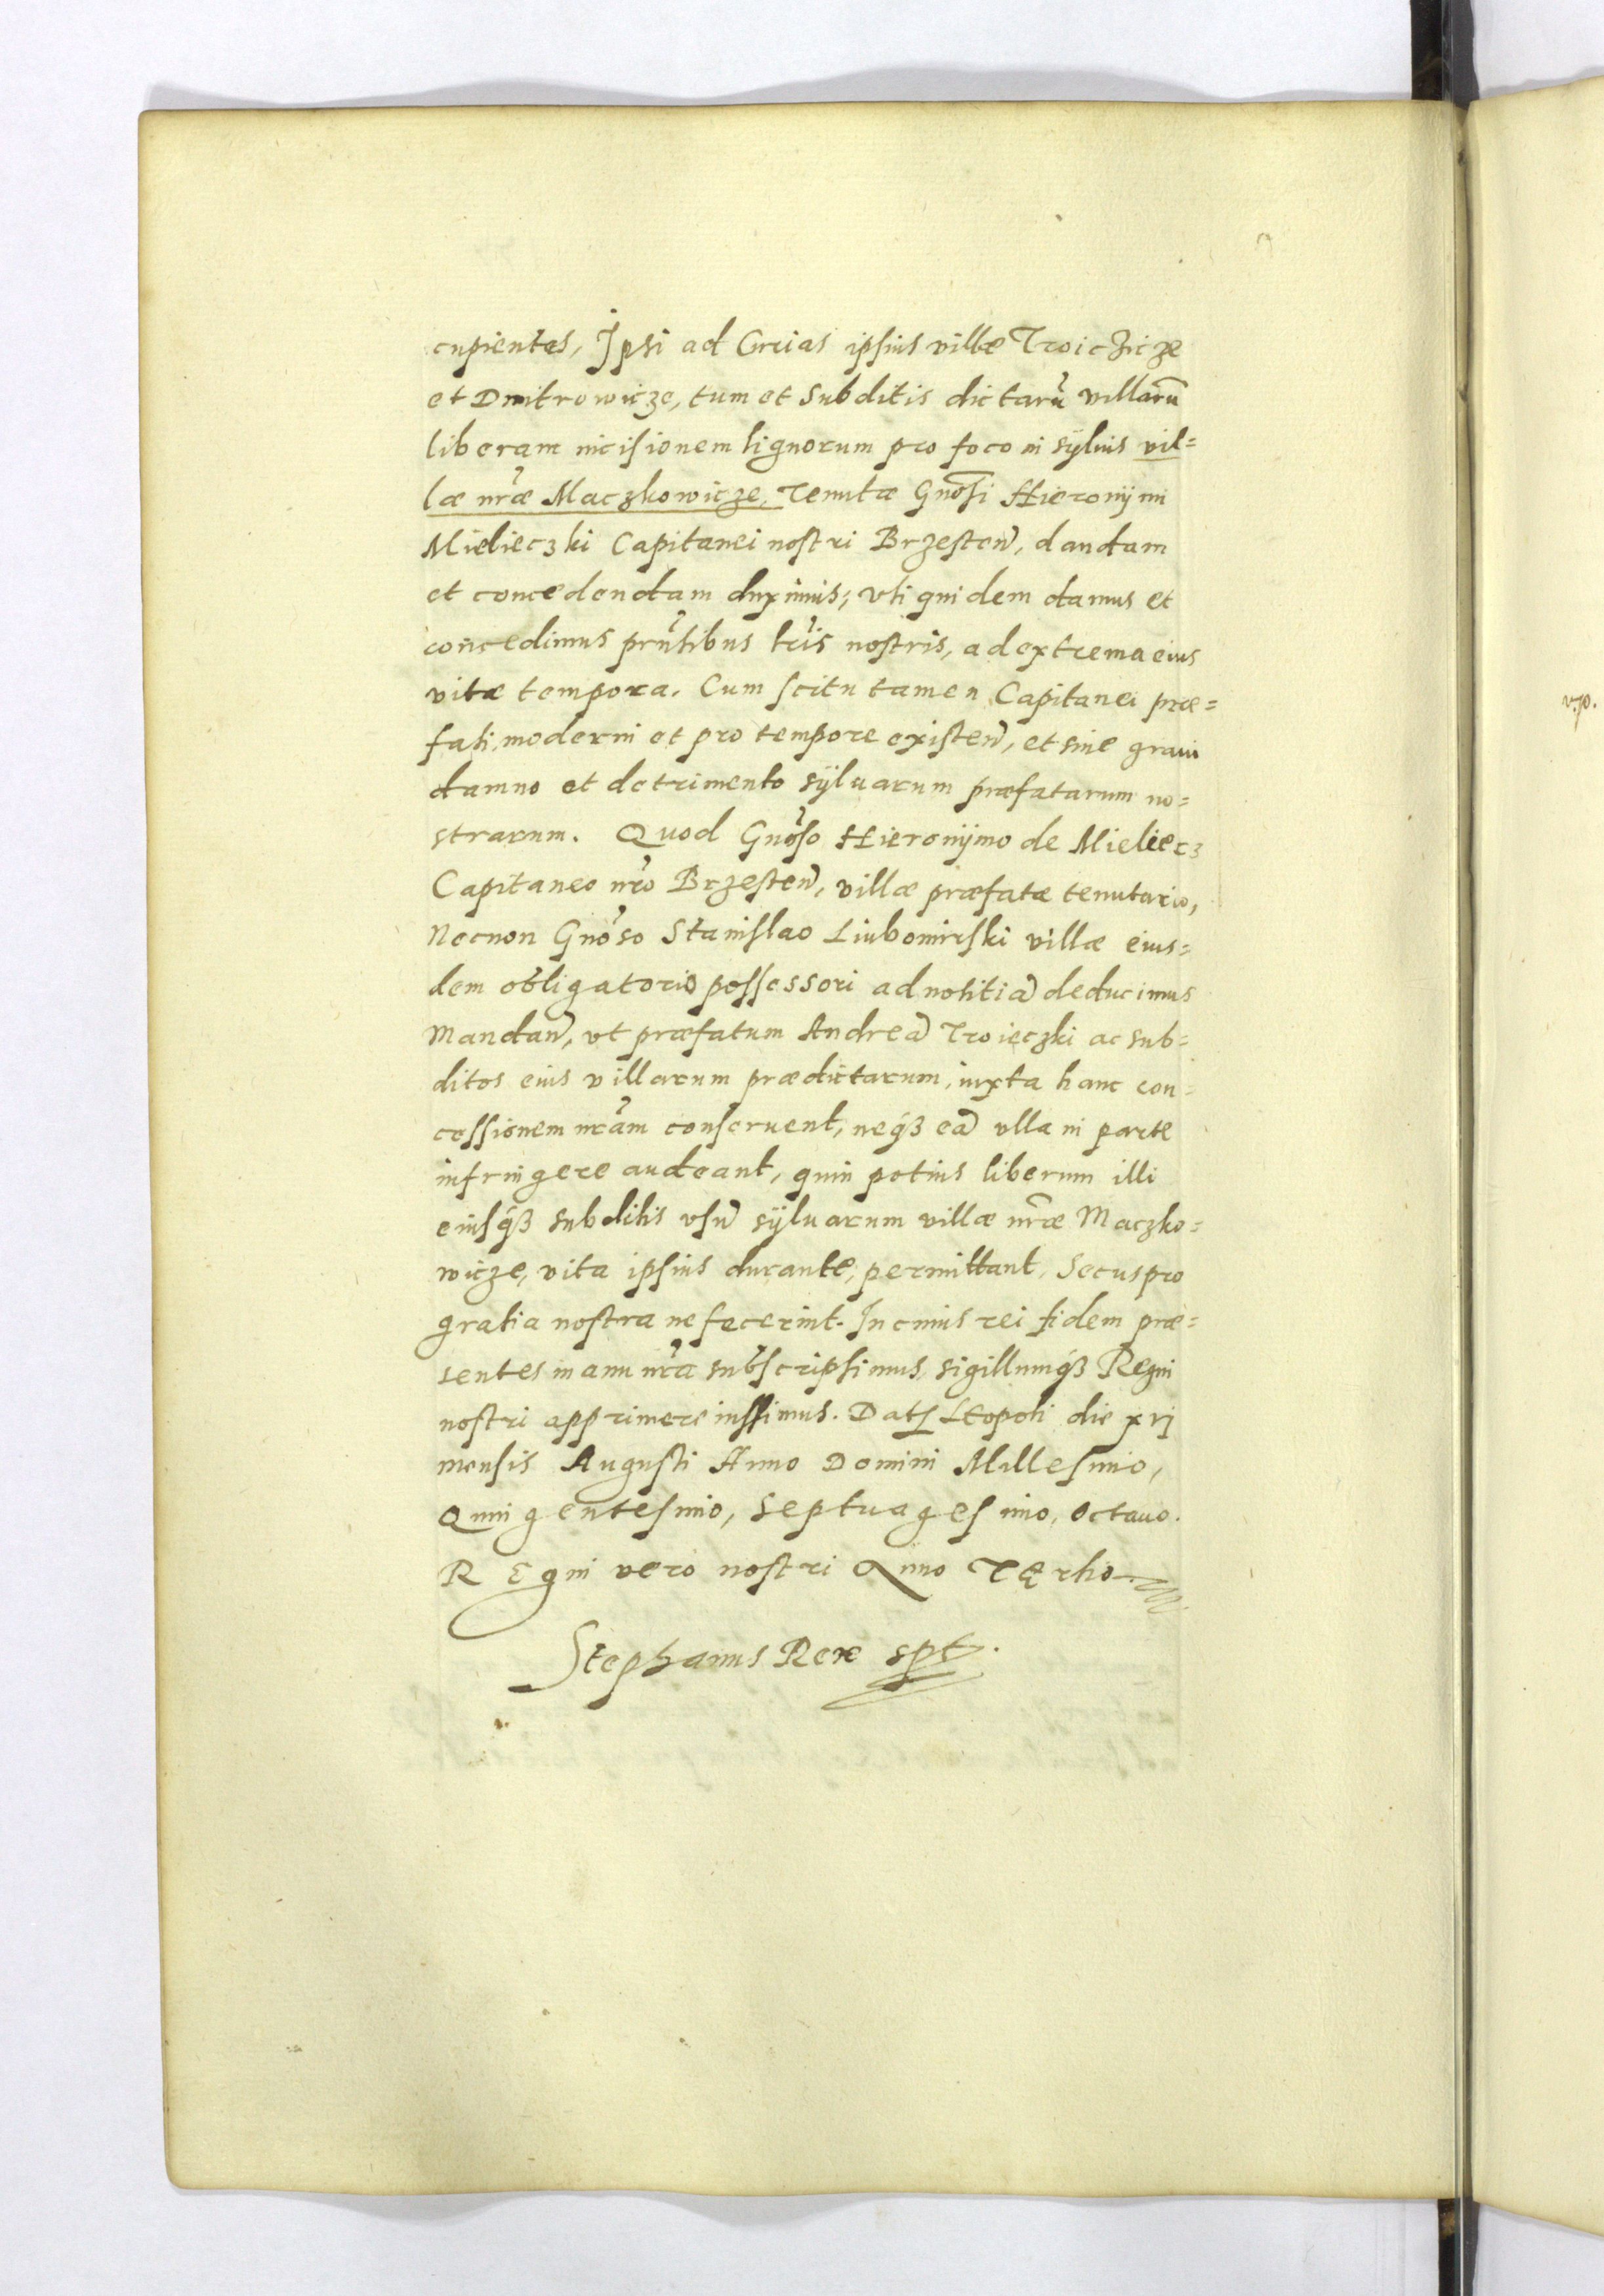 cupientes, Ipsi ad Curias ipsius villæ Troiczicze
et Dmitrowicze, tum et subditis dictarū villarū
liberam incisionem lignorum pro foco in sÿluis vil=
læ nr̃æ Maczkowicze, Tenutæ Gnõsi Hieronÿmi
Mielieczki Capitanei nostri Brzesteñ, dandam
et concedendam duximus; vti quidem damus et
concedimus pñtibus lr̃is nostris, ad extrema eius
vitæ tempora. Cum scitu tamen Capitanei præ=
fati, moderni et pro tempore existeñ, et sine graui
damno et detrimento sÿluarum præfatarum no=
strarum. Quod Gnõso Hieronÿmo de Mieliecz
Capitaneo nr̃o Brzesteñ, villæ præfatæ tenutario,
Necnon Gnõso Stanislao Liubomirski villæ eius=
dem obligatorio possessori ad notitiã deducimus
Mandañ, vt præfatum Andreã Troieczki ac sub=
ditos eius villarum prædictarum, iuxta hanc con=
cessionem nr̃am conseruent, neqȝ eã vlla in parte
infringere audeant, quin potius liberum illi
eiusqȝ subditis vsũ sÿluarum villæ nr̃æ Maczko=
wicze, vita ipsius durante, permittant, Secus pro
gratia nostra ne fecerint. In cuius rei fidem præ=
sentes manu nr̃a subscripsimus, sigillumqȝ Regni
nostri apprimere iussimus. Dat Leopoli die xvj
mensis Augusti Anno Domini Millesimo,
Quingentesimo, Septuagesimo, Octauo.
REgni vero nostri Anno TErtio
Stephanus Rex spt.
v.p.